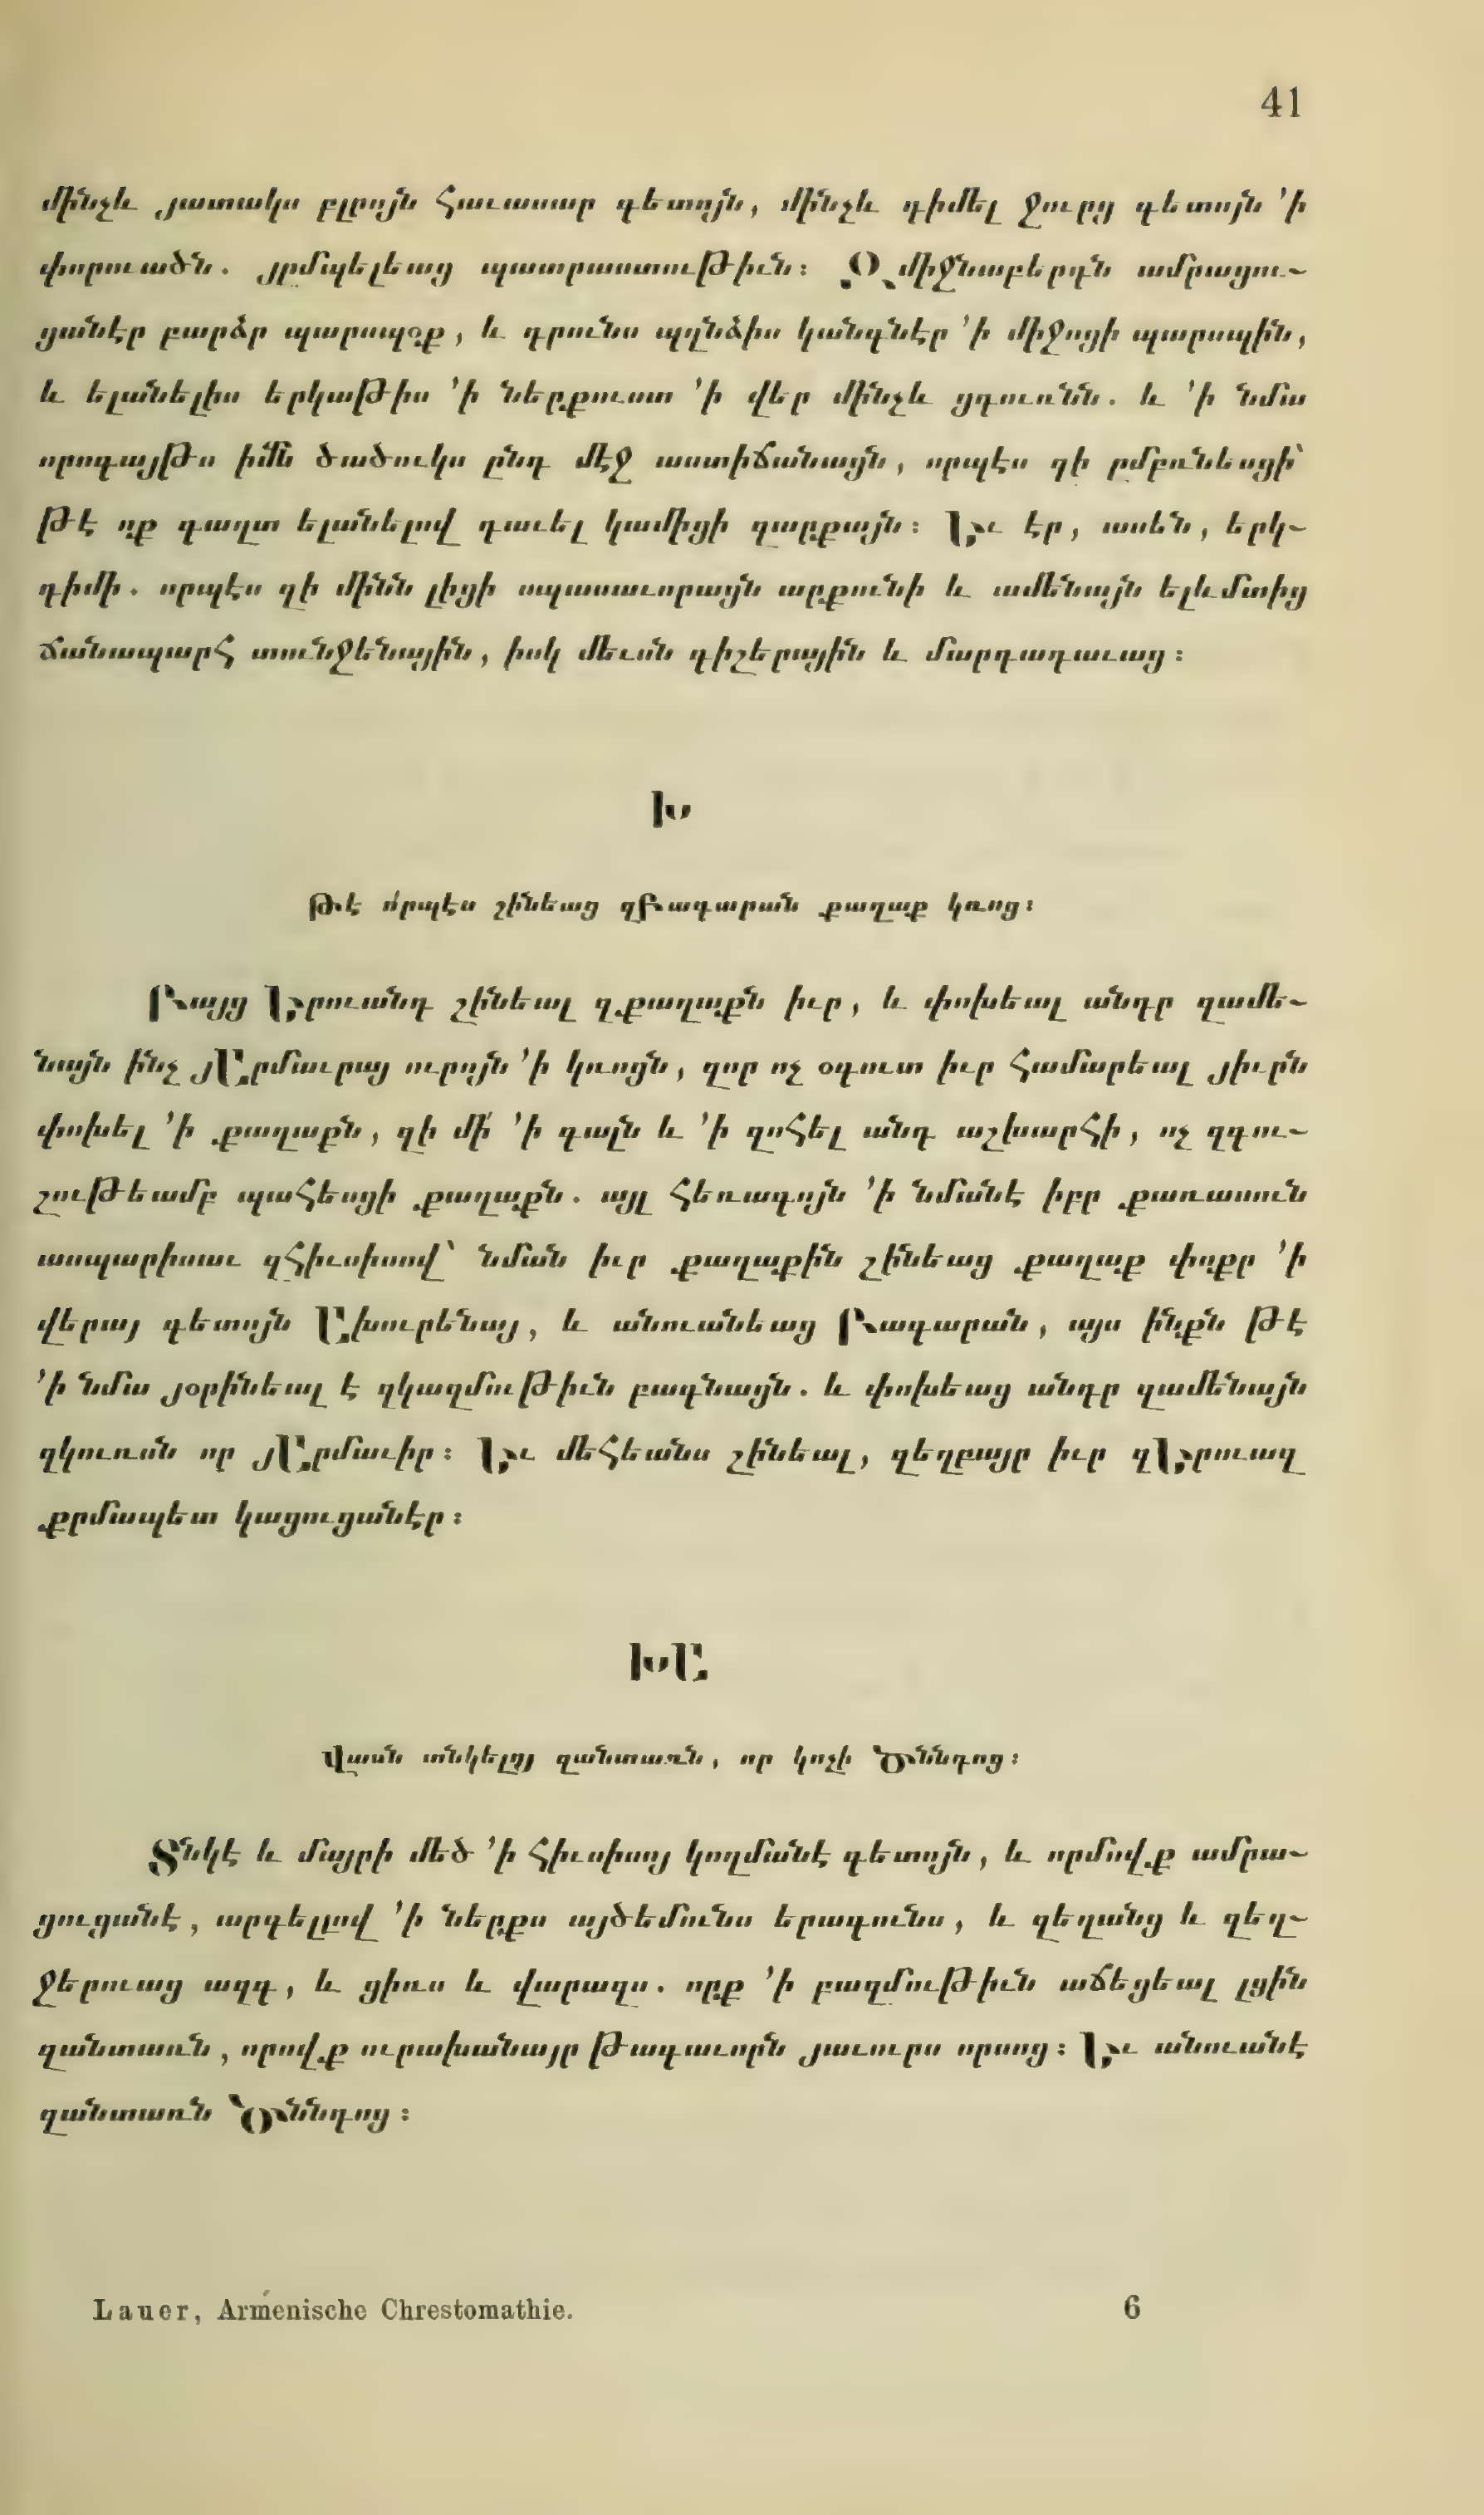 41
մինչև յատակս բլրոյն հաւասար գետոյն, մինչև դիմել ջուրց գետոյն ՚ի
փորուածն. յըմպելեաց պատրաստութիւն։ Զմիջնաբերդն ամրացու-
ցանէր բարձր պարսպօք, և դրունս պղնձիս կանգնէր ՚ի միջոցի պարսպին,
և ելանելիս երկաթիս ՚ի ներքուստ ՚ի վեր մինչև ցդուռնն. և ՚ի նմա
որոգայթս իմն ծածուկս ընդ մէջ աստիճանացն, որպէս զի ըմբռնեսցի՝
թէ ոք գաղտ ելանելով դաւել կամիցի զարքայն։ Եւ էր, ասեն, երկ-
դիմի. որպէս զի մինն լիցի սպասաւորացն արքունի և ամենայն ելևմտից
ճանապարհ տունջենային, իսկ մեւսն գիշերային և մարդադաւաց։
Խ
Թէ ո՛րպէս շինեաց զԲագարան քաղաք կռոց։
Բայց Երուանդ շինեալ զքաղաքն իւր, և փոխեալ անդր զամե-
նայն ինչ յԱրմաւրայ ուրոյն ՚ի կռոյն, զոր ոչ օգուտ իւր համարեալ յիւրն
փոխել ՚ի քաղաքն, զի մի՛ ՚ի գալն և ՚ի զոհել անդ աշխարհի, ոչ զգու-
շութեամբ պահեսցի քաղաքն. այլ հեռագոյն ՚ի նմանէ իբր քառասուն
ասպարիսաւ զհիւսիսով՝ նման իւր քաղաքին շինեաց քաղաք փոքր ՚ի
վերայ գետոյն Ախուրենայ, և անուանեաց Բագարան, այս ինքն թէ
՚ի նմա յօրինեալ է զկազմութիւն բագնացն. և փոխեաց անդր զամենայն
զկուռսն որ յԱրմաւիր։ Եւ մեհեանս շինեալ, զեղբայր իւր զԵրուազ
քրմապետ կացուցանէր։
ԽԱ
Վասն տնկելոյ զանտառն, որ կոչի Ծննդոց։
Տնկէ և մայրի մեծ ՚ի հիւսիսոյ կողմանէ գետոյն, և որմովք ամրա-
ցուցանէ, արգելլով ՚ի ներքս այծեմունս երագունս, և զեղանց և զեղ-
ջերուաց ազգ, և ցիռս և վարազս. որք ՚ի բազմութիւն աճեցեալ լցին
զանտառն, որովք ուրախանայր թագաւորն յաւուրս որսոց։ Եւ անուանէ
զանտառն Ծննդոց։
Lauer, Armenische Chrestomathie. 6